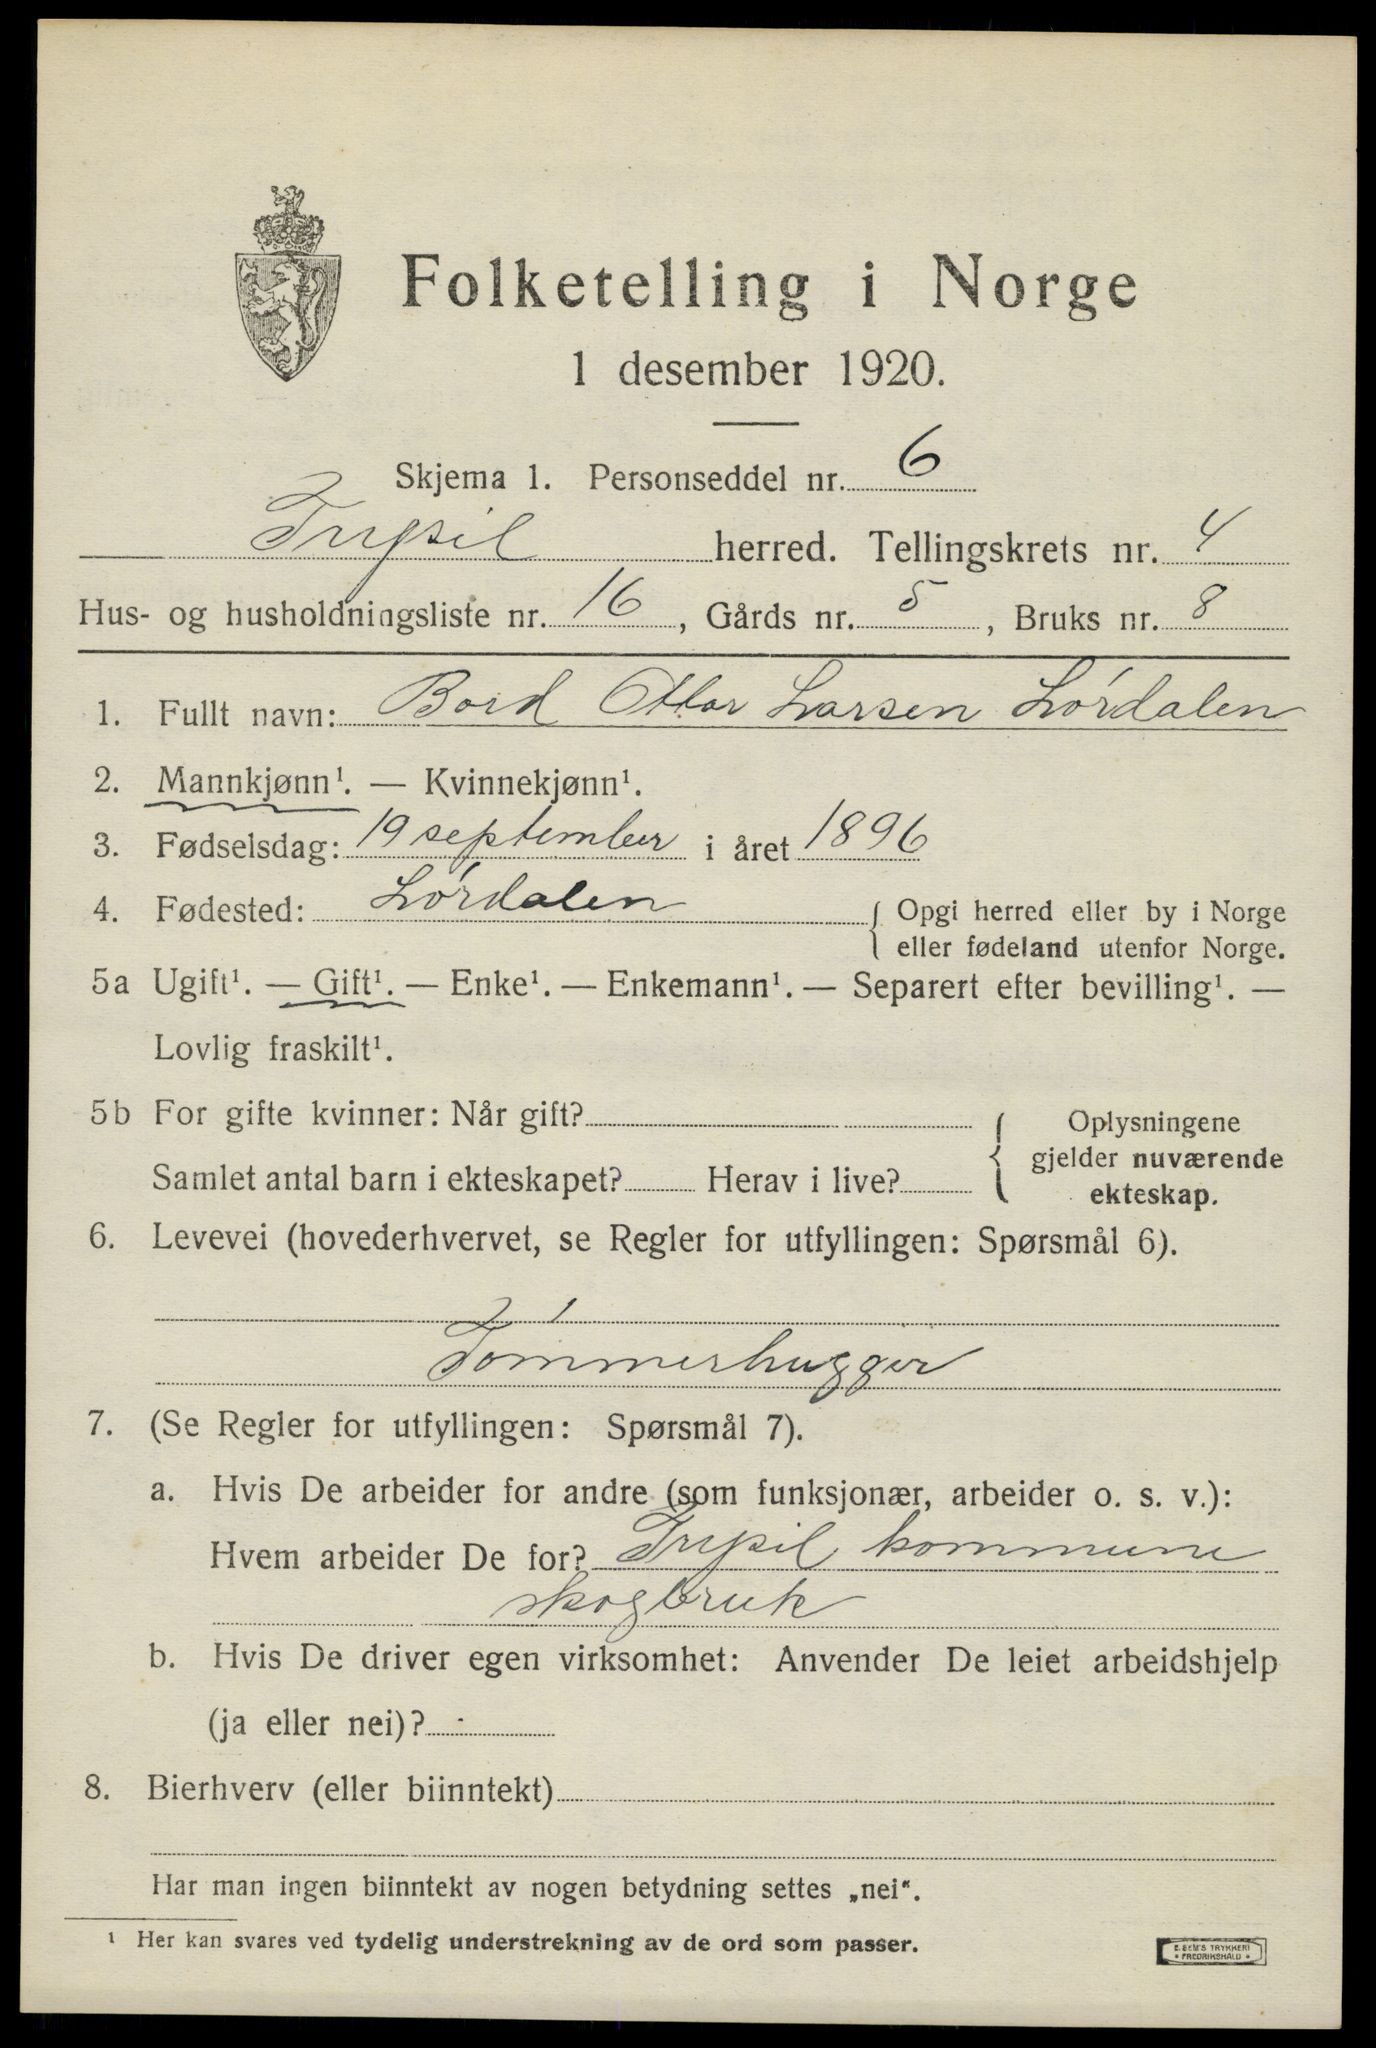 Folketelling i Norge
1 desember 1920.
Skjema 1. Personseddel nr. 6
Trysil herred. Tellingskrets nr. 4
Hus- og husholdningsliste nr. 16, Gårds nr. 5, Bruks nr. 8
1. Fullt navn: Bord Ottar Larsen Lørdalen
2. Mannkjønn¹. — Kvinnekjønn¹.
3. Fødselsdag: 19 september i året 1896
4. Fødested: Lørdalen { Opgi herred eller by i Norge
eller fødeland utenfor Norge.
5a Ugift¹. — Gift¹. — Enke¹. — Enkemann¹. — Separert efter bevilling¹. —
Lovlig fraskilt¹.
5b For gifte kvinner: Når gift? { Oplysningene
gjelder nuværende
Samlet antal barn i ekteskapet? Herav i live?
ekteskap.
6. Levevei (hovederhvervet, se Regler for utfyllingen: Spørsmål 6).
Tømmerhugger
7. (Se Regler for utfyllingen: Spørsmål 7).
a. Hvis De arbeider for andre (som funksjonær, arbeider o. s. v.):
Hvem arbeider De for? Trysil kommune
skogbruk
b. Hvis De driver egen virksomhet: Anvender De leiet arbeidshjelp
(ja eller nei)? -
8. Bierhverv (eller biinntekt)
Har man ingen biinntekt av nogen betydning settes „nei“.
¹ Her kan svares ved tydelig understrekning av de ord som passer.
E. SEM'S TRYKKERI
FREDRIKSHALD